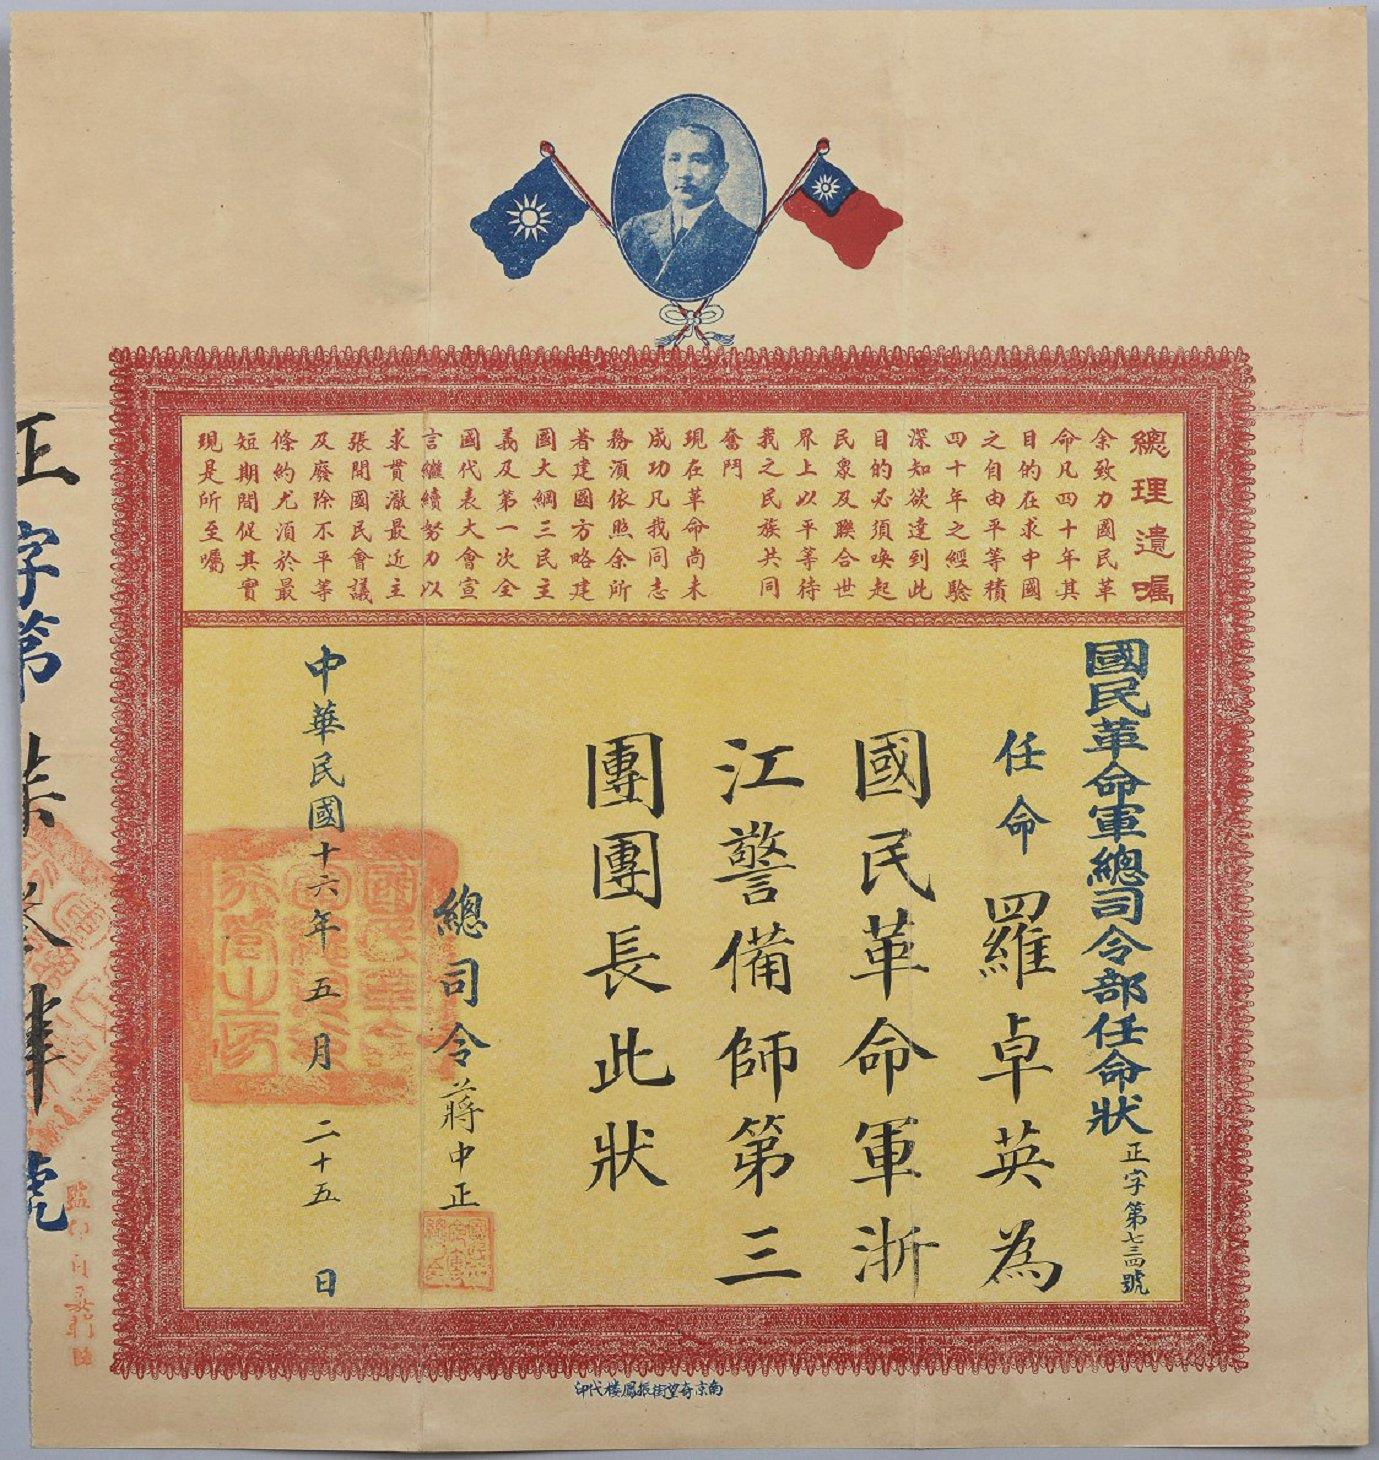 總理遺囑
余致力國民革
命凡四十年其
目的在求中國
之自由平等積
四十年之經驗
深知欲達到此
目的必須喚起
民衆及聯合世
界上以平等待
我之民族共同
奮鬥
現在革命尚未
成功凡我同志
務須依照余所
著建國方略建
國大綱三民主
義及第一次全
國代表大會宣
言繼續努力以
求貫澈最近主
張開國民會議
及廢除不平等
條約尤須於最
短期間促其實
現是所至囑
國民革命軍總司令部任命狀 正字第七三四號
任命羅卓英為
國民革命軍浙
江警備師第三
團團長此狀
總司令蔣中正
中華民國十六年五月二十五日
正字第柒叁肆號
南京奇望街振鳳樓代印